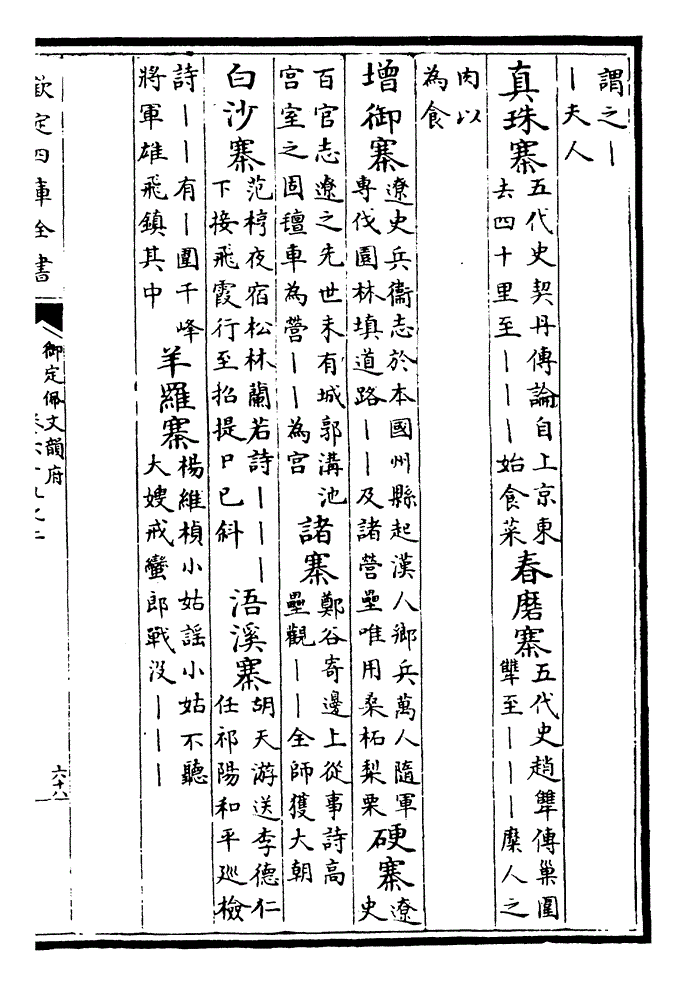 謂之丨
丨夫人
真珠寨
五代史契丹傳論自上京東
去四十里至丨丨丨始食菜
舂磨寨
五代史趙犨傳巢圍
犨至丨丨丨糜人之
肉以
為食
增御寨
遼史兵衞志於本國州縣起漢人鄉兵萬人隨軍
專伐園林填道路丨丨及諸營壘唯用桑柘梨栗
硬寨
遼
史
百官志遼之先世未有城郭溝池
宫室之固氊車為營丨丨為宫
諸寨
鄭谷寄邊上從事詩高
壘觀丨丨全師獲大朝
白沙寨
范梈夜宿松林蘭若詩丨丨丨
下接飛霞行至招提日已斜
浯溪寨
胡天游送李德仁
任祁陽和平巡檢
詩丨丨有丨圍千峰
將軍雄飛鎮其中
羊羅寨
楊維楨小姑謠小姑不聽
大嫂戒蠻郎戰没丨丨丨
欽定四庫全書
御定佩文韻府
六十八